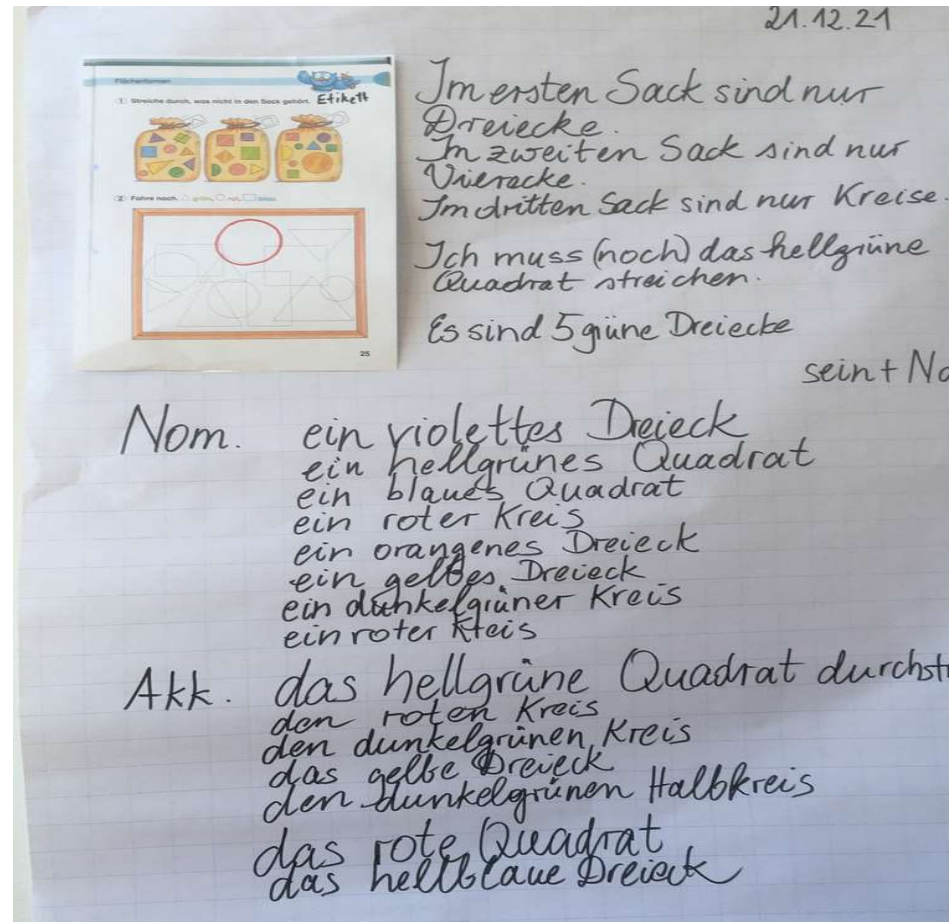 21.12.21
Flächenformen
1 Streiche durch, was nicht in den Sack gehört. Etikett
2 Fahre nach. grün, rot, blau.
25
Im ersten Sack sind nur
Dreiecke.
Im zweiten Sack sind nur
Vierecke.
Im dritten Sack sind nur Kreise.
Ich muss (noch) das hellgrüne
Quadrat streichen.
Es sind 5 grüne Dreiecke
sein + No
Nom. ein violettes Dreieck
ein hellgrünes Quadrat
ein blaues Quadrat
ein roter Kreis
ein orangenes Dreieck
ein gelbes Dreieck
ein dunkelgrüner Kreis
ein roter Kreis
Akk. das hellgrüne Quadrat durchst
den roten Kreis
den dunkelgrünen Kreis
das gelbe Dreieck
den dunkelgrünen Halbkreis
das rote Quadrat
das hellblaue Dreieck